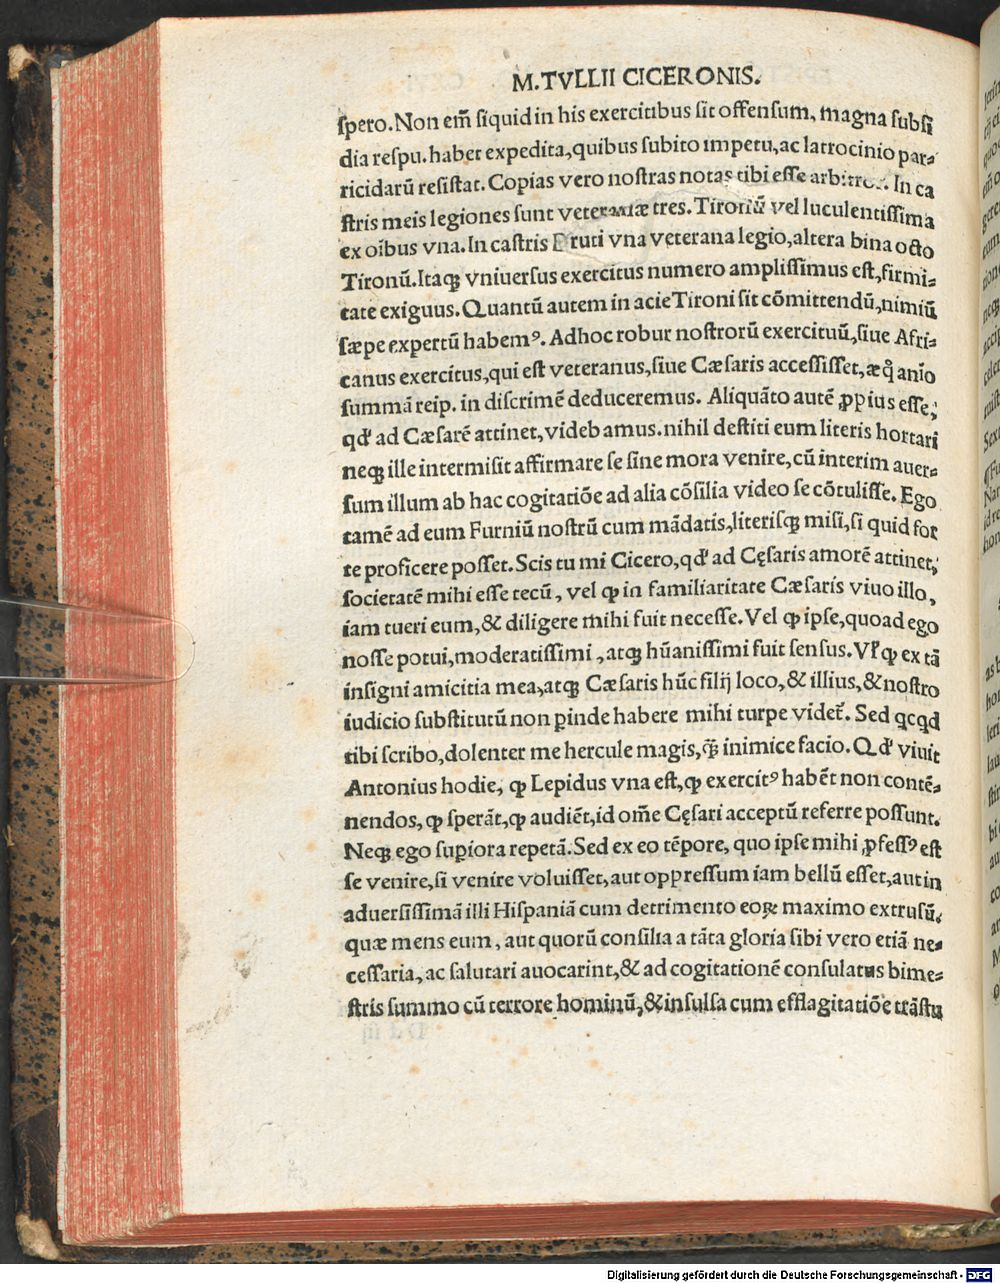 M.TVLLII CICERONIS.
ſpero. Non em̃ ſiquid in his exercitibus ſit offenſum, magna ſubſi
dia reſpu. habet expedita, quibus ſubito impetu, ac latrocinio par⸗
ricidarũ reſiſtat. Copias vero noſtras notas tibi eſſe arbitror. In ca
ſtris meis legiones ſunt veteranæ tres. Tironũ vel luculentiſſima
ex oĩbus vna. In caſtris Bruti vna veterana legio, altera bina octo
Tironũ. Itaqꝫ vniuerſus exercitus numero ampliſſimus eſt, firmi⸗
tate exiguus. Quantũ autem in acie Tironi ſit cõmittendũ, nimiũ
ſæpe expertũ habemꝰ. Adhoc robur noſtrorũ exercituũ, ſiue Afri⸗
canus exercitus, qui eſt veteranus, ſiue Cæſaris acceſſiſſet, æq̊ anĩo
ſummã reip. in diſcrimẽ deduceremus. Aliquãto autẽ ꝓpius eſſe,
qd' ad Cæſarẽ attinet, videbamus. nihil deſtiti eum literis hortari
neqꝫ ille intermiſit affirmare ſe ſine mora venire, cũ interim auer⸗
ſum illum ab hac cogitatiõe ad alia cõſilia video ſe cõtuliſſe. Ego
tamẽ ad eum Furniũ noſtrũ cum mãdatis, literiſqꝫ miſi, ſi quid for
te proficere poſſet. Scis tu mi Cicero, qd' ad Cęſaris amorẽ attinet,
ſocietatẽ mihi eſſe tecũ, vel ꝙ in familiaritate Cæſaris viuo illo,
iam tueri eum, & diligere mihi fuit neceſſe. Vel ꝙ ipſe, quoad ego
noſſe potui, moderatiſſimi, atqꝫ hũaniſſimi fuit ſenſus. Vl' ꝙ ex tã
inſigni amicitia mea, atqꝫ Cæſaris hũc filij loco, & illius, & noſtro
iudicio ſubſtitutũ non ꝑinde habere mihi turpe videt̃. Sed qcqd
tibi ſcribo, dolenter me hercule magis, q̃ꝫ inimice facio. Qd' viuit
Antonius hodie, ꝙ Lepidus vna eſt, ꝙ exercitꝰ habẽt non contẽ⸗
nendos, ꝙ ſperãt, ꝙ audiẽt, id om̃e Cęſari acceptũ referre poſſunt.
Neqꝫ ego ſuꝑiora repetã. Sed ex eo tẽpore, quo ipſe mihi ꝓfeſſꝰ eſt
ſe venire, ſi venire voluiſſet, aut oppreſſum iam bellũ eſſet, aut in
aduerſiſſimã illi Hiſpaniã cum detrimento eoꝝ maximo extruſũ.
quæ mens eum, aut quorũ conſilia a tãta gloria ſibi vero etiã ne⸗
ceſſaria, ac ſalutari auocarint, & ad cogitationẽ conſulatus bime⸗
ſtris ſummo cũ terrore hominũ, & inſulſa cum efflagitatiõe trãſtu
Digitalisierung gefördert durch die Deutsche Forschungsgemeinschaft - DFG